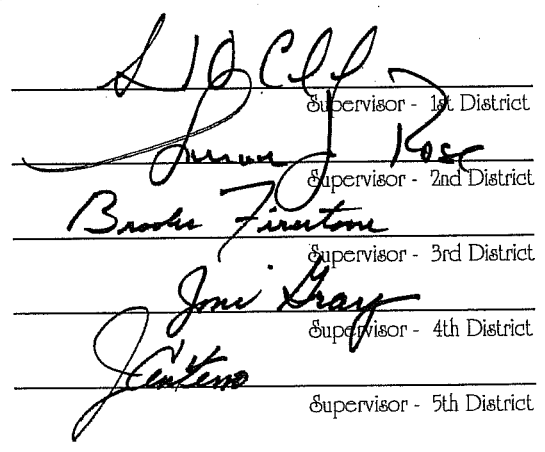 Supervisor - 1st District
Susan J Rose
Supervisor - 2nd District
Brooks Firestone
Supervisor - 3rd District
Joni Gray
Supervisor - 4th District
J Centeno
Supervisor - 5th District